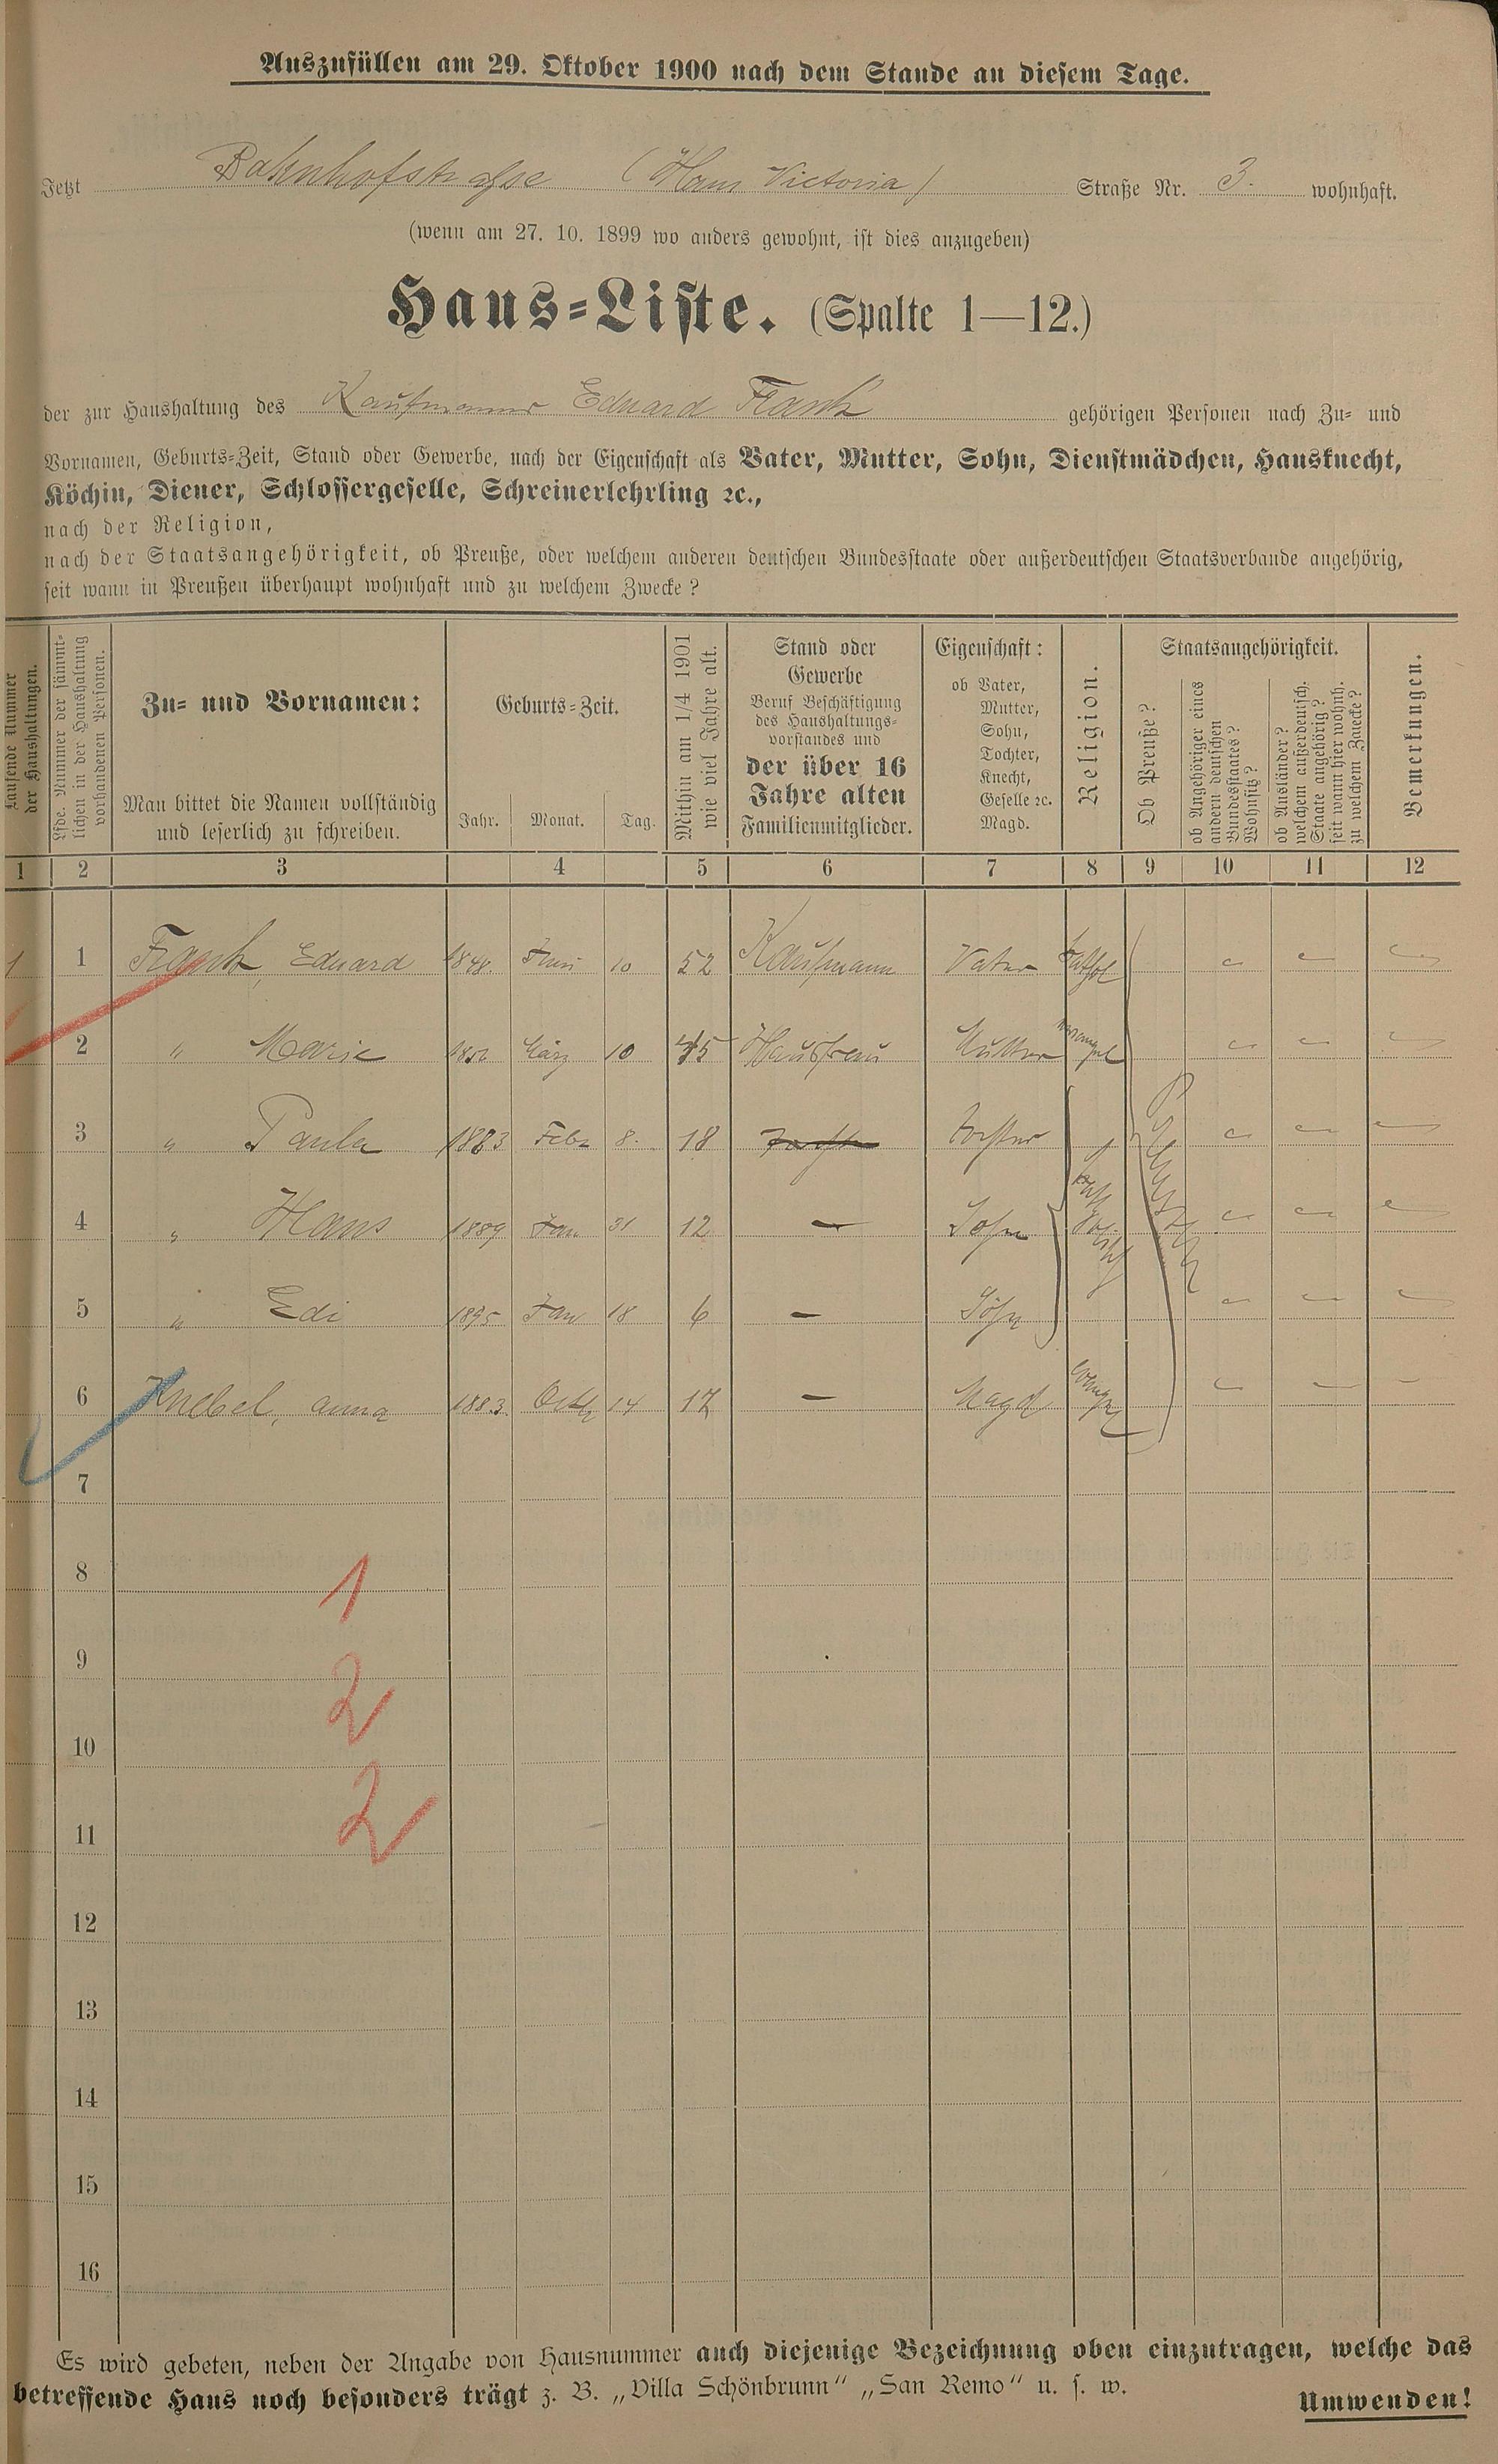 Auszufüllen am 29. Oktober 1900 nach dem Stande an diesem Tage.
Jetzt Bahnhofstrasse (Haus Victoria) Straße Nr. 3. wohnhaft.
(wenn am 27. 10. 1899 wo anders gewohnt, ist dies anzugeben)
Haus-Liste. (Spalte 1—12.)
der zur Haushaltung des Kaufmanns Eduard Frank gehörigen Personen nach Zu- und
Vornamen, Geburts-Zeit, Stand oder Gewerbe, nach der Eigenschaft als Vater, Mutter, Sohn, Dienstmädchen, Hausknecht,
Köchin, Diener, Schlossergeselle, Schreinerlehrling ꝛc.,
nach der Religion,
nach der Staatsangehörigkeit, ob Preuße, oder welchem anderen deutschen Bundesstaate oder außerdeutschen Staatsverbande angehörig,
seit wann in Preußen überhaupt wohnhaft und zu welchem Zwecke?
Laufende Nummer
der Haushaltungen.
Lfde. Nummer der sämmt-
lichen in der Haushaltung
vorhandenen Personen.
Zu- und Vornamen:
Man bittet die Namen vollständig
und leserlich zu schreiben.
Geburts-Zeit.
Jahr. Monat. Tag.
Mithin am 1/4 1901
wie viel Jahre alt.
Stand oder
Gewerbe
Beruf Beschäftigung
des Haushaltungs-
vorstandes und
der über 16
Jahre alten
Familienmitglieder.
Eigenschaft:
ob Vater,
Mutter,
Sohn,
Tochter,
Knecht,
Geselle ꝛc.
Magd.
Religion.
Staatsangehörigkeit.
Ob Preuße?
ob Angehöriger eines
andern deutschen
Bundesstaates?
Wohnsitz?
ob Ausländer?
welchem außerdeutsch.
Staate angehörig?
seit wann hier wohnh.
zu welchem Zwecke?
Bemerkungen.
1 2 3 4 5 6 7 8 9 10 11 12
1 1 Frank, Eduard 1848. Juni 10 52 Kaufmann Vater kathol
2 " Marie März 10 45 Hausfrau Mutter evangel
3 " Paula 1883 Febr 8. 18 Tochter
4 " Hans 1889 Jan 31 12 — Sohn
5 " Edi 1895 Jan 18 6 — Sohn
6 Knebel, Anna 1883. Octb 14 17 — Magd evangel
7
8
1
9
2
10
2
11
12
13
14
15
16
Es wird gebeten, neben der Angabe von Hausnummer auch diejenige Bezeichnung oben einzutragen, welche das
betreffende Haus noch besonders trägt z. B. „Villa Schönbrunn“ „San Remo“ u. s. w.
Umwenden!